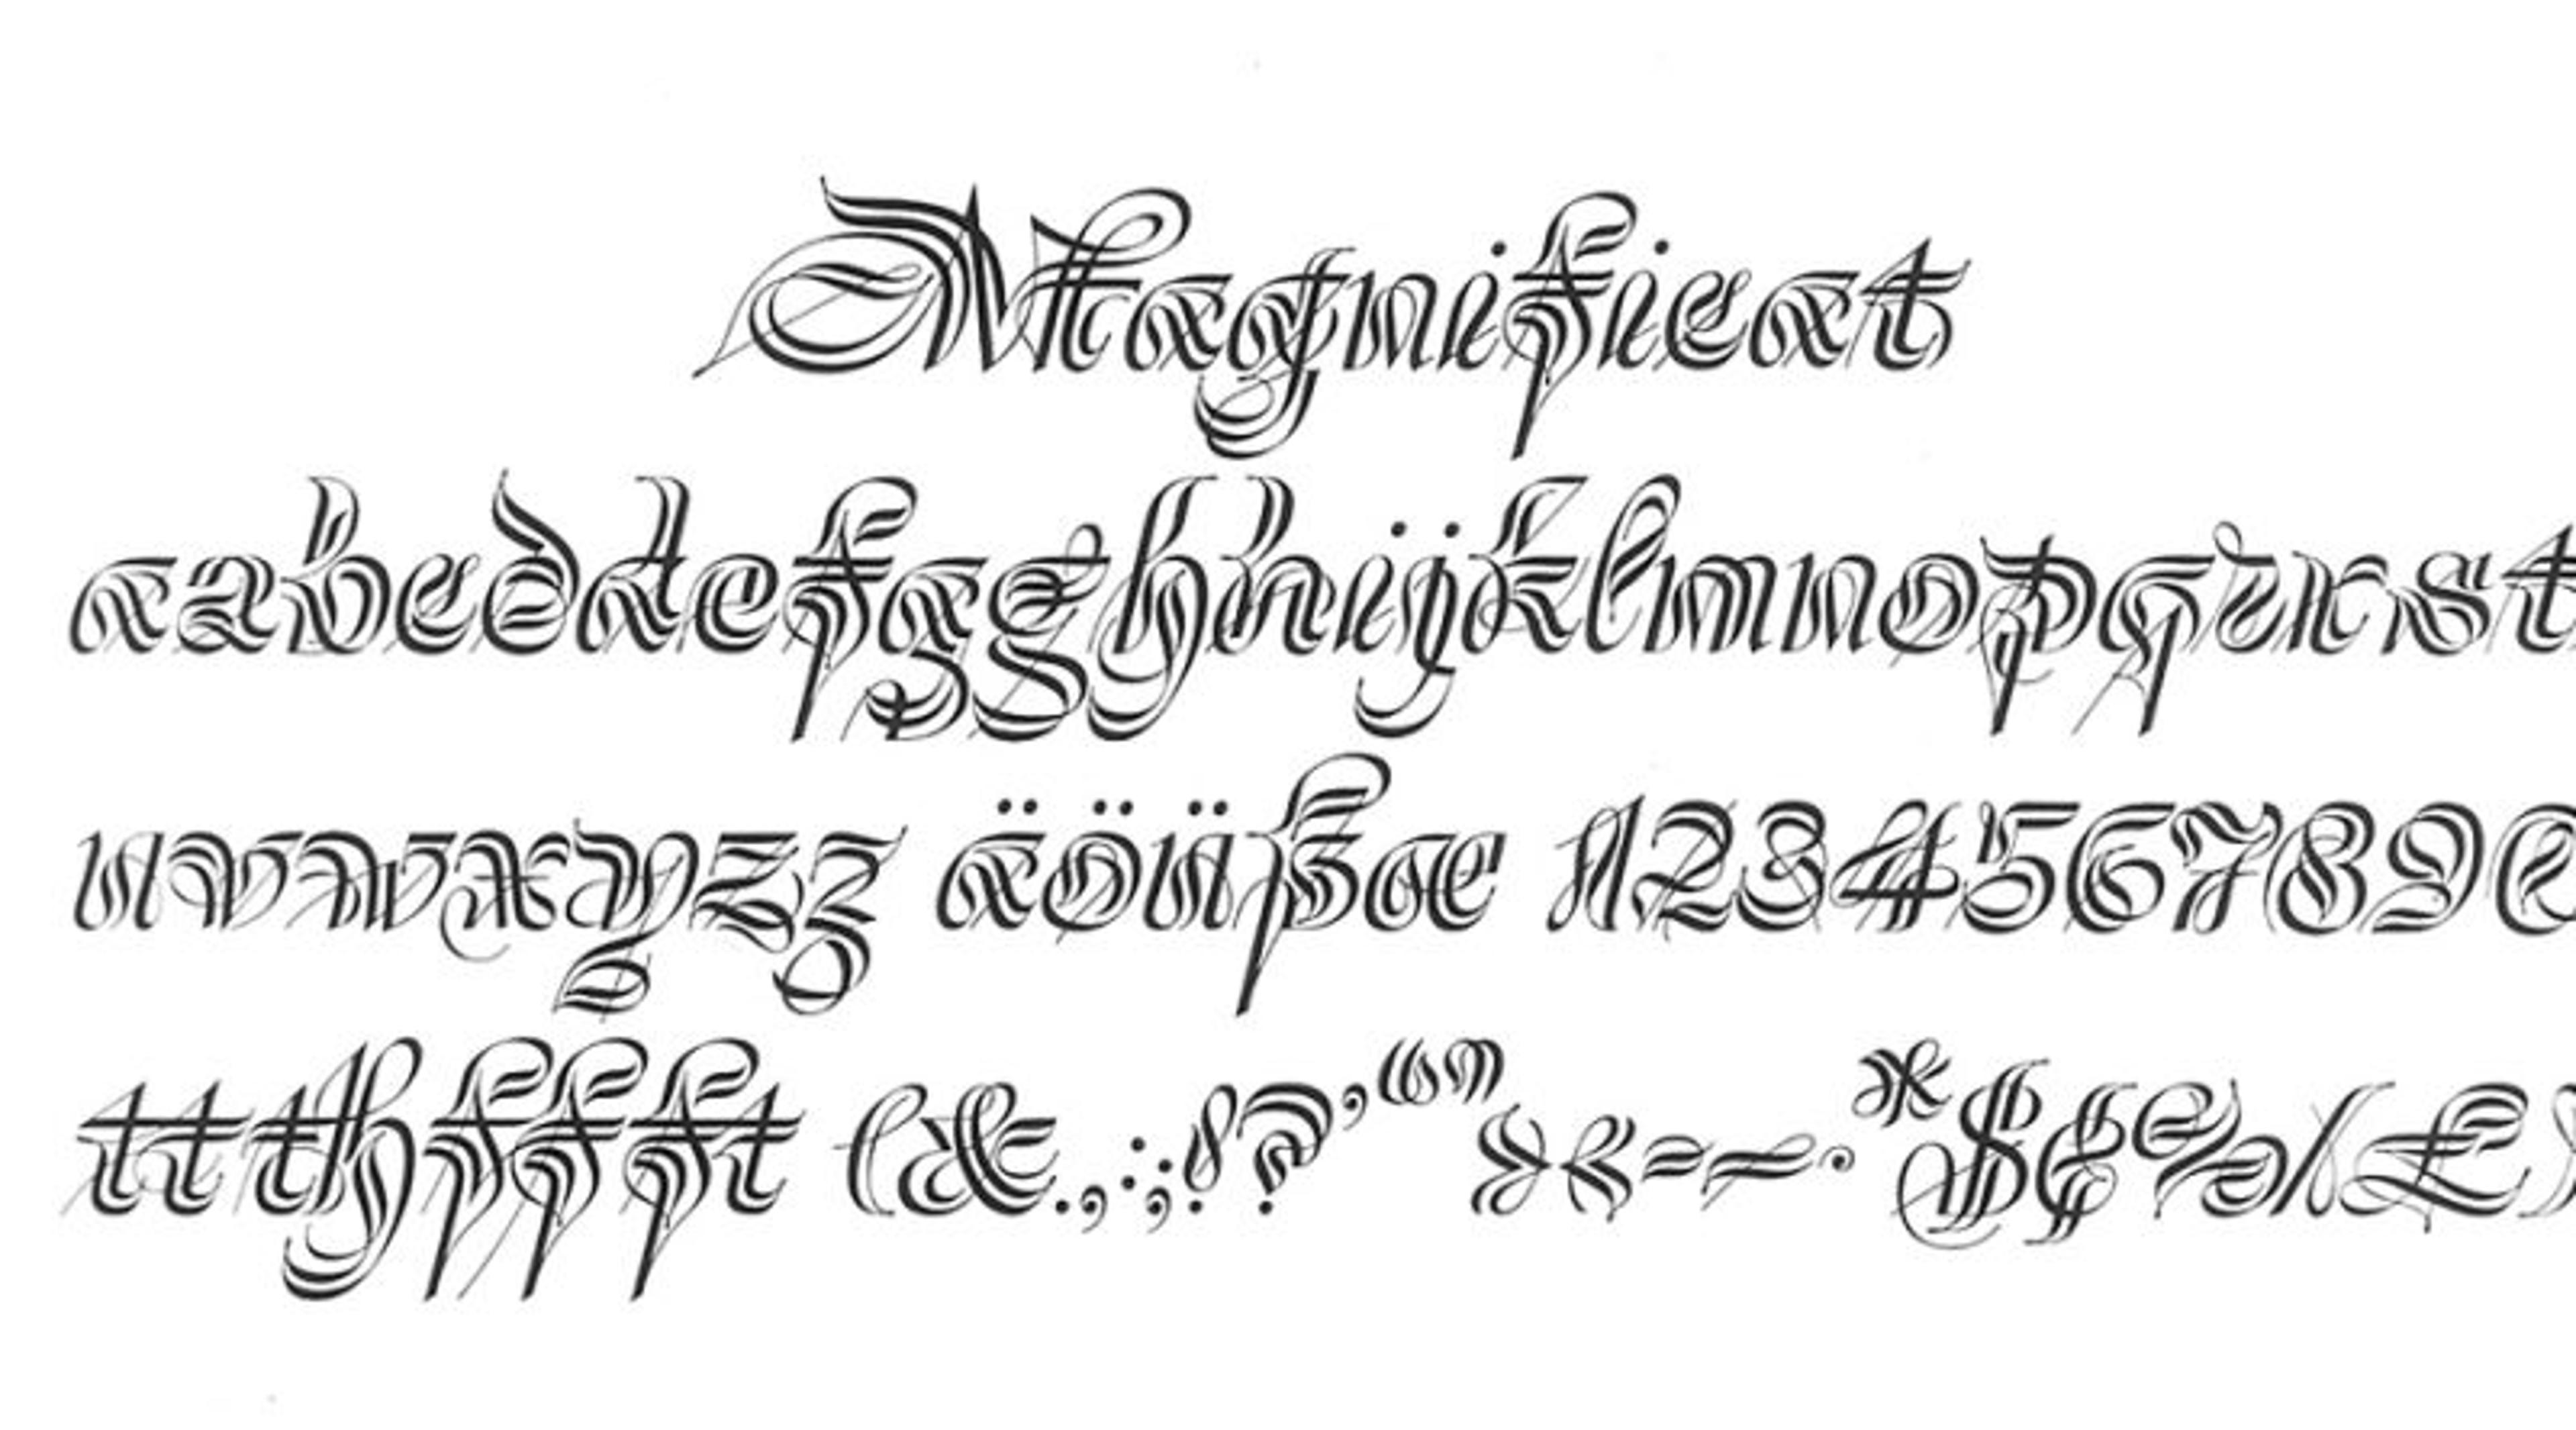 Magnificat
aabcddefgghhijklmnopqrrst
uvwxyzz äöüßæ 1234567890
tt th ff ft (&.,:;!?’“”»«=—·*$¢%/£)